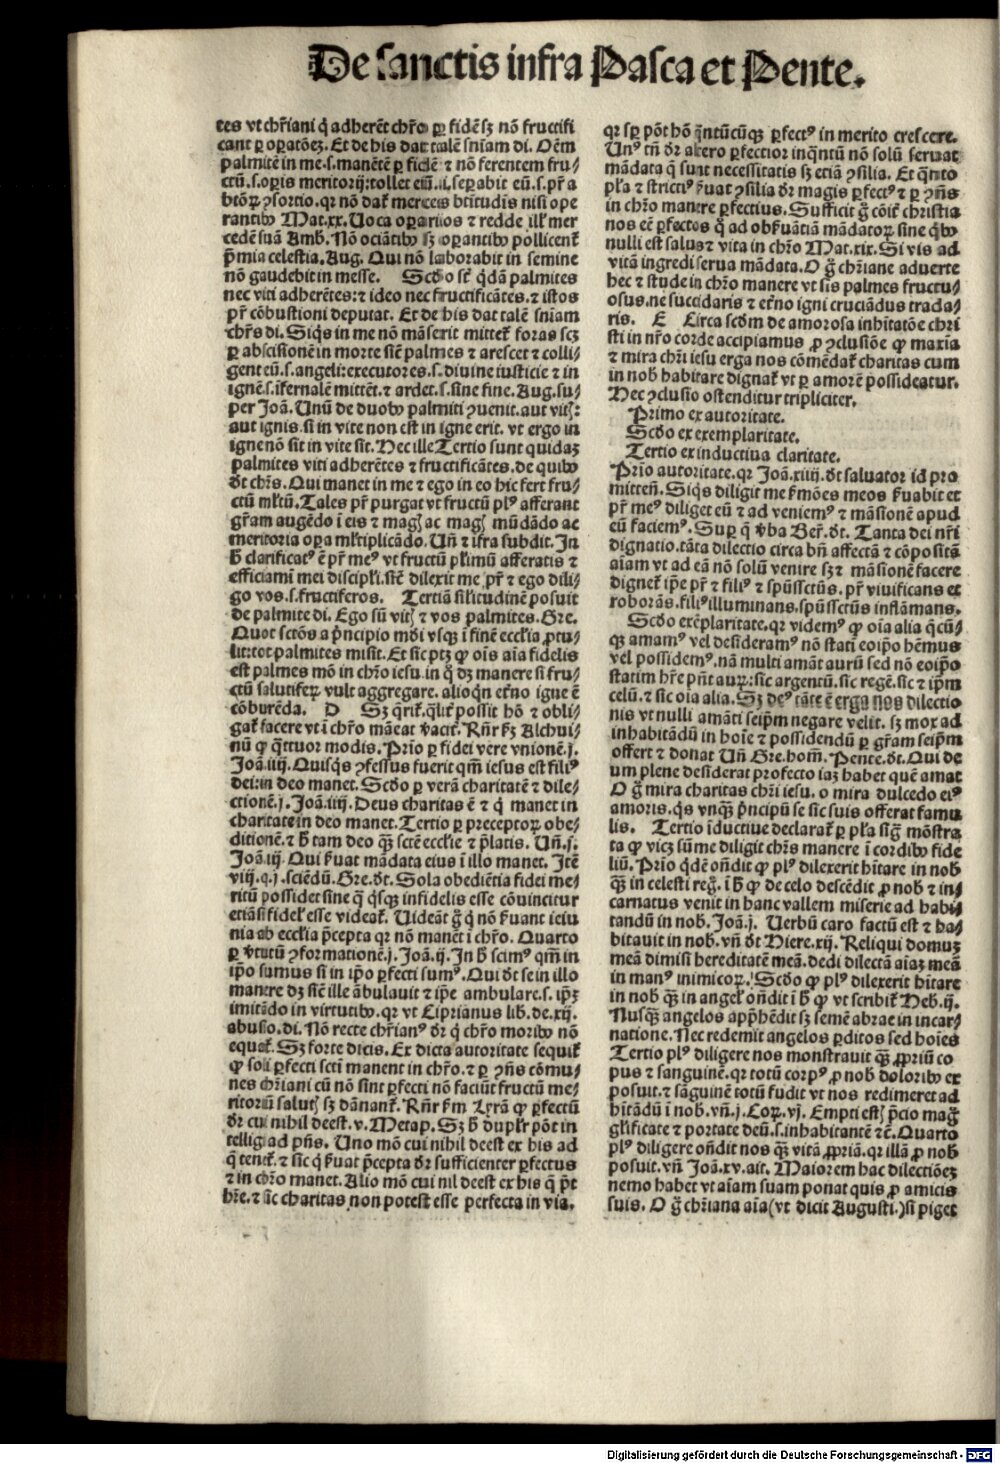 De sanctis infra Pasca et Pente.
tes vt chr̄iani q̇ adherēt chr̄o ꝑ fidē sꝫ nō fructifi
cant ꝑ oꝑatōeꝫ. Et de his dat talē sn̄iam di. Oēm
palmitē in me .s. manētē ꝑ fidē ⁊ nō ferentem fru⸗
ctū .s. oꝑis meritorij: tollet eiū .i. seꝑabit eū .s. pr̄ a
btōꝝ ꝯsortio. qꝛ nō dat᷑ merceis btitudis nisi ope
rantibꝰ Mat. xx. Uoca oꝑarios ⁊ redde ill᷑ mer
cedē suā Amb. Nō ociātibꝰ sꝫ oꝑantibꝰ pollicent᷑
p̄mia celestia. Aug. Qui nō laborabit in semine
nō gaudebit in messe. Scd̄o st̄ q̇dā palmites
nec viti adherētes: ⁊ ideo nec fructificātes. ⁊ istos
pr̄ cōbustioni deputat. Et de his dat talē sn̄iam
chr̄s di. Siq̇s in me nō māserit mittet᷑ foras scꝫ
ꝑ abscisionē in morte siē palmes ⁊ arescet ⁊ colli⸗
gent eū .s. angeli: executores .s. diuine iusticie ⁊ in
ignē .s. īfernalē mittēt. ⁊ ardet .s. sine fine. Aug. su⸗
per Joā. Unū de duobꝰ palmiti ꝯuenit. aut vitꝭ:
aut ignis. si in vite non est in igne erit. vt ergo in
igne nō sit in vite sit. Hec ille Tertio sunt quidaꝫ
palmites viti adherētes ⁊ fructificātes. de quibꝰ
dt̄ chr̄s. Qui manet in me ⁊ ego in eo hic fert fru⸗
ctū ml̄tū. Tales pr̄ purgat vt fructū plꝰ afferant
gr̄am augēdo ī eis ⁊ magꝭ ac magꝭ mūdādo ac
meritoria oꝑa ml̄tiplicādo. Un̄ ⁊ ifra subdit. In
h̄ clarificatꝰ ē pr̄ meꝰ vt fructū pl̄imū afferatis ⁊
efficiamī mei discipl̄i. sic̄ dilexit me pr̄ ⁊ ego dili⸗
go vos .s. fructiferos. Tertiā sīlitudinē posuit
de palmite di. Ego sū vitꝭ ⁊ vos palmites. Gre.
Quot sctōs a p̄ncipio mūdi vsqꝫ ī finē eccl̄ia ꝓtu⸗
lit: tot palmites misit. Et sic ptꝫ ꝙ oīs aīa fidelis
est palmes mō in chr̄o iesu. in q̇ dꝫ manere si fru⸗
ctū salutifeꝝ vult aggregare. alioqn̄ et̄no igne ē
cōburēda. D Sꝫ q̄rit᷑. q̄lit᷑ possit hō ⁊ obli⸗
gat᷑ facere vt ī chr̄o māeat ⁊ vacit. Rn̄r fꝫ Alchui⸗
nū ꝙ q̄ttuor modis. Prīo ꝑ fidei vere vnionē. j.
Joā. iiij. Quisq̇s ꝯfessus fuerit qm̄ iesus est filiꝰ
dei: in deo manet. Scd̄o ꝑ verā charitatē ⁊ dile⸗
ctionē. j. Joā. iiij. Deus charitas ē ⁊ q̇ manet in
charitate in deo manet. Tertio ꝑ preceptoꝝ obe⸗
ditionē. ⁊ h̄ tam deo qꝫ̄ sctē eccl̄ie ⁊ p̄latis. Un̄. j.
Joā. iij. Qui s̄uat mādata eius ī illo manet. Itē
viij. q. j. sciēdū. Gre. dt̄. Sola obediētia fidei me⸗
ritū possidet sine q̄ q̇sqꝫ infidelis esse cōuincitur
etiā si fidel᷑ esse videat᷑. Uideāt g̊ q̇ nō s̄uant ieiu
nia ab eccl̄ia p̄cepta qꝛ nō manēt ī chr̄o. Quarto
ꝑ v̄tutū ꝯformationē. j. Joā. ij. In h̄ scimꝰ qm̄ in
ip̄o sumus si in ip̄o ꝑfecti sumꝰ. Qui dt̄ se in illo
manere dꝫ siē ille ābulauit ⁊ ip̄e ambulare .s. ip̄ꝫ
imitādo in virtutibꝰ. qꝛ vt Ciprianus lib. de. xij.
abusio. di. Nō recte chr̄ianꝰ dr̄ q̇ chr̄o moribꝰ nō
equat᷑. Sꝫ forte dicis. Ex dicta autoritate sequit᷑
ꝙ soli ꝑfecti scti manent in chr̄o. ⁊ ꝑ ꝯn̄s cōmu⸗
nes chr̄iani cū nō sint ꝑfecti nō faciūt fructū me⸗
ritoriū salutꝭ sꝫ dānant᷑. Rn̄r fm̄ Lyrā ꝙ ꝑfectū
dr̄ cui nihil deest. v. Metap. Sꝫ h̄ dupl᷑r pōt in
telligi ad pn̄s. Uno mō cui nihil deest ex his ad
q̄ tenet᷑. ⁊ sic q̇ s̄uat p̄cepta dr̄ sufficienter ꝑfectus
⁊ in chr̄o manet. Alio mō cui nil deest ex his q̄ pn̄t
hr̄e. ⁊ sic charitas non potest esse perfecta in via.
qꝛ sꝑ pōt hō q̄ntūcūqꝫ ꝑfectꝰ in merito crescere.
Unꝰ tn̄ dr̄ altero ꝑfectior inq̄ntū nō solū seruat
mādata q̄ sunt necessitatis sꝫ etiā ꝯsilia. Et q̄nto
pl̄a ⁊ strictiꝰ s̄uat ꝯsilia dr̄ magis ꝑfectꝰ ⁊ ꝑ ꝯn̄s
in chr̄o manere ꝑfectius. Sufficit g̊ cōit᷑ christia
nos eē ꝑfectos q̊ ad obs̄uātiā mādatoꝝ sine q̇bꝰ
nulli est salus ⁊ vita in chr̄o Mat. xix. Si vis ad
vitā ingredi serua mādata. O g̊ chr̄iane aduerte
hec ⁊ stude in chr̄o manere vt sis palmes fructu⸗
osus. ne succidaris ⁊ et̄no igni cruciādus trada⸗
ris. E Circa scd̄m de amorosa inhītatōe chri
sti in nr̄o corde accipiamus ꝓ ꝯclusiōe ꝙ maxīa
⁊ mira chr̄i iesu erga nos cōmēdat᷑ charitas cum
in nob̄ habitare dignat᷑ vt ꝑ amorē possideatur.
Hec ꝯclusio ostenditur tripliciter.
Primo ex autoritate.
Scd̄o ex exemplaritate.
Tertio ex inductiua claritate.
Prīo autoritate. qꝛ Joā. xiiij. dt̄ saluator id pro
mitten̄. Siq̇s diligit me s̄mōes meos s̄uabit et
pr̄ meꝰ diliget eū ⁊ ad veniemꝰ ⁊ māsionē apud
eū faciemꝰ. Suꝑ q̄ v̄ba Ber. dt̄. Tanta dei nr̄i
dignatio. tāta dilectio circa bn̄ affectā ⁊ cōpositā
aīam vt ad eā nō solū venire sꝫ ⁊ māsionē facere
dignet᷑ ip̄e pr̄ ⁊ filiꝰ ⁊ spūssctūs. pr̄ viuificans et
roborās. filiꝰ illuminans. spūssctūs inflāmans.
Scd̄o exēplaritate. qꝛ videmꝰ ꝙ oīa alia q̄cū⸗
qꝫ amamꝰ vel desideramꝰ nō stati eoip̄o hēmus
vel possidemꝰ. nā multi amāt aurū sed nō eoip̄o
statim hr̄e pn̄t auꝝ: sic argentū. sic regē. sic ⁊ ip̄m
celū. ⁊ sic oīa alia. Sꝫ deꝰ tāte ē erga nos dilectio
nis vt nulli amāti seip̄m negare velit. sꝫ mox ad
inhabitādū in hoīe ⁊ possidendū ꝑ gr̄am seip̄m
offert ⁊ donat Un̄ Gre. hom̄. Pente. dt̄. Qui de
um plene desiderat profecto iaꝫ habet quē amat
O g̊ mira charitas chr̄i iesu. o mira dulcedo eiꝰ
amoris. q̇s vnqꝫ̄ p̄ncipū se sic suis offerat famu
lis. Tertio īductiue declarat᷑ ꝑ pl̄a sig̊ mōstra
ta ꝙ vicꝫ sūme diligit chr̄s manere ī cordibꝰ fide
liū. Prīo q̇dē on̄dit ꝙ plꝰ dilexerit hītare in nob̄
qꝫ̄ in celesti reg̊. ī h̄ ꝙ de celo descēdit ꝓ nob̄ ⁊ in⸗
carnatus venit in hanc vallem miserie ad habi⸗
tandū in nob̄. Joā. j. Uerbū caro factū est ⁊ ha⸗
bitauit in nob̄. vn̄ dt̄ Hiere. xij. Reliqui domuꝫ
meā dimisi hereditatē meā. dedi dilectā aīaꝫ meā
in manꝰ inimicoꝝ. Scd̄o ꝙ plꝰ dilexerit hītare
in nob̄ qꝫ̄ in angel᷑ on̄dit ī h̄ ꝙ vt scribit᷑ Heb. ij.
Nusqꝫ̄ angelos app̄hēdit sꝫ semē abrae in incar⸗
natione. Nec redemit angelos ꝑditos sed hoīes
Tertio plꝰ diligere nos monstrauit qꝫ̄ ꝓpriū co
pus ⁊ sanguinē. qꝛ totū corpꝰ ꝓ nob̄ doloribꝰ ex
posuit. ⁊ sāguinē totū fudit vt nos redimeret ad
hītādū ī nob̄. vn̄. j. Coꝝ. vj. Empti estꝭ p̄cio mag̊
gl̄ificate ⁊ portate deū .s. inhabitantē ⁊c̄. Quarto
plꝰ diligere on̄dit nos qꝫ̄ vitā ꝓpriā. qꝛ illā ꝓ nob̄
posuit. vn̄ Joā. xv. ait. Maiorem hac dilectiōeꝫ
nemo habet vt aīam suam ponat quis ꝓ amicis
suis. O g̊ chr̄iana aīa (vt dicit Augusti.) si piget
Digitalisierung gefördert durch die Deutsche Forschungsgemeinschaft - DFG